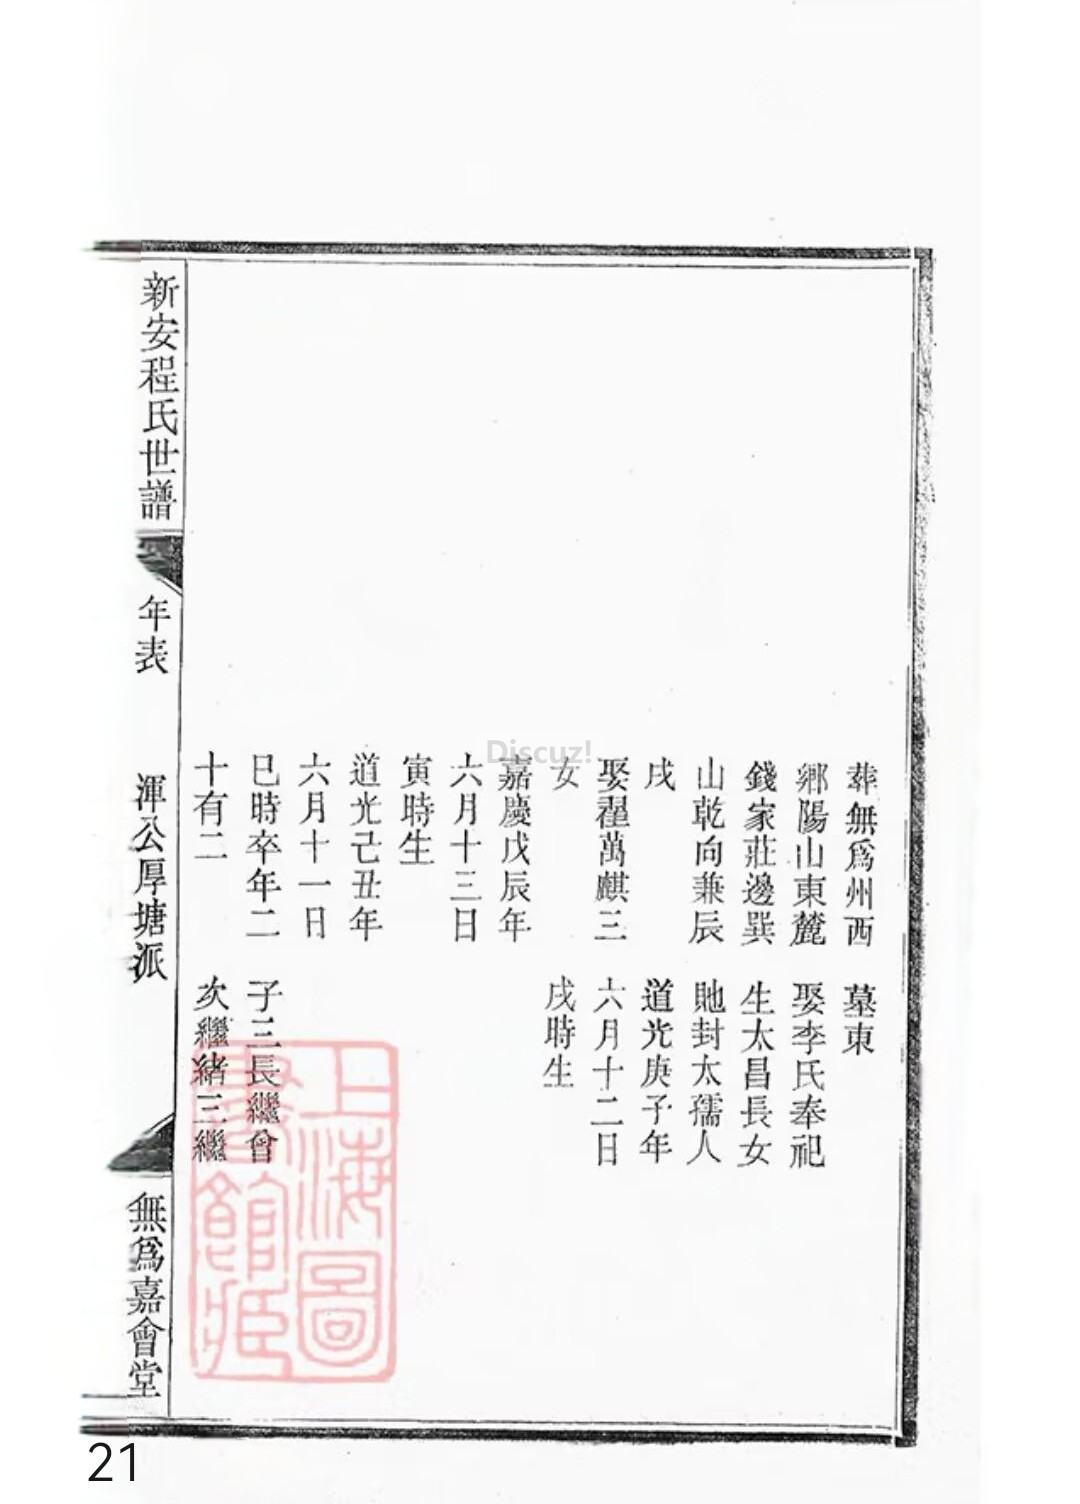 葬無爲州西
鄉陽山東麓
錢家莊邊巽
山乾向兼辰
戌
娶翟萬麒三
女
嘉慶戊辰年
六月十三日
寅時生
道光己丑年
六月十一日
巳時卒年二
十有二
墓東
娶李氏奉祀
生太昌長女
貤封太孺人
道光庚子年
六月十二日
戌時生
子三長繼會
次繼緒三繼
上海圖
書館藏
新安程氏世譜
年表
渾公厚塘派
無爲嘉會堂
Discuz!
21